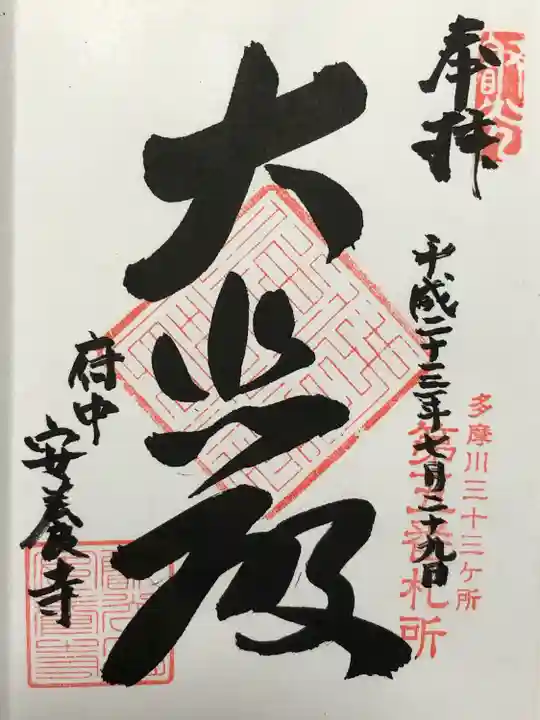 奉拝
平成二十三年七月二十九日
多摩川三十三ヶ所
第十三番札所
大悲殿
府中
安養寺